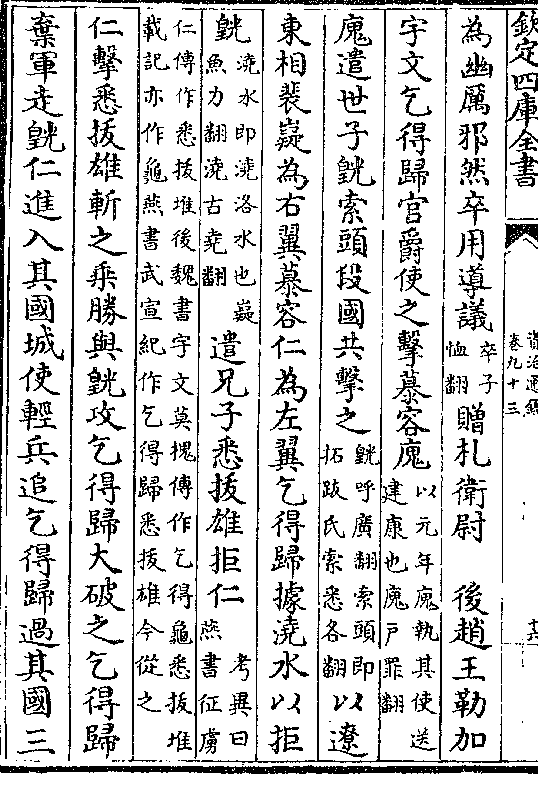 欽定四庫全書
資治通鑑
卷九十三
十六
為幽厲邪然卒用導議卒子恤翻贈札衛尉 後趙王勒加
宇文乞得歸官爵使之擊慕容廆以元年廆執其使送建康也廆戸罪翻
廆遣世子皝索頭段國共擊之皝呼廣翻索頭即拓跋氏索悉各翻以遼
東相裴嶷為右翼慕容仁為左翼乞得歸據澆水以拒
皝澆水即澆洛水也嶷魚力翻澆古堯翻遣兄子悉拔雄拒仁考異曰燕書征虜
仁傳作悉拔堆後魏書宇文莫槐傳作乞得龜悉拔堆載記亦作龜燕書武宣紀作乞得歸悉拔雄今從之
仁擊悉拔雄斬之乘勝與皝攻乞得歸大破之乞得歸
棄軍走皝仁進入其國城使輕兵追乞得歸過其國三